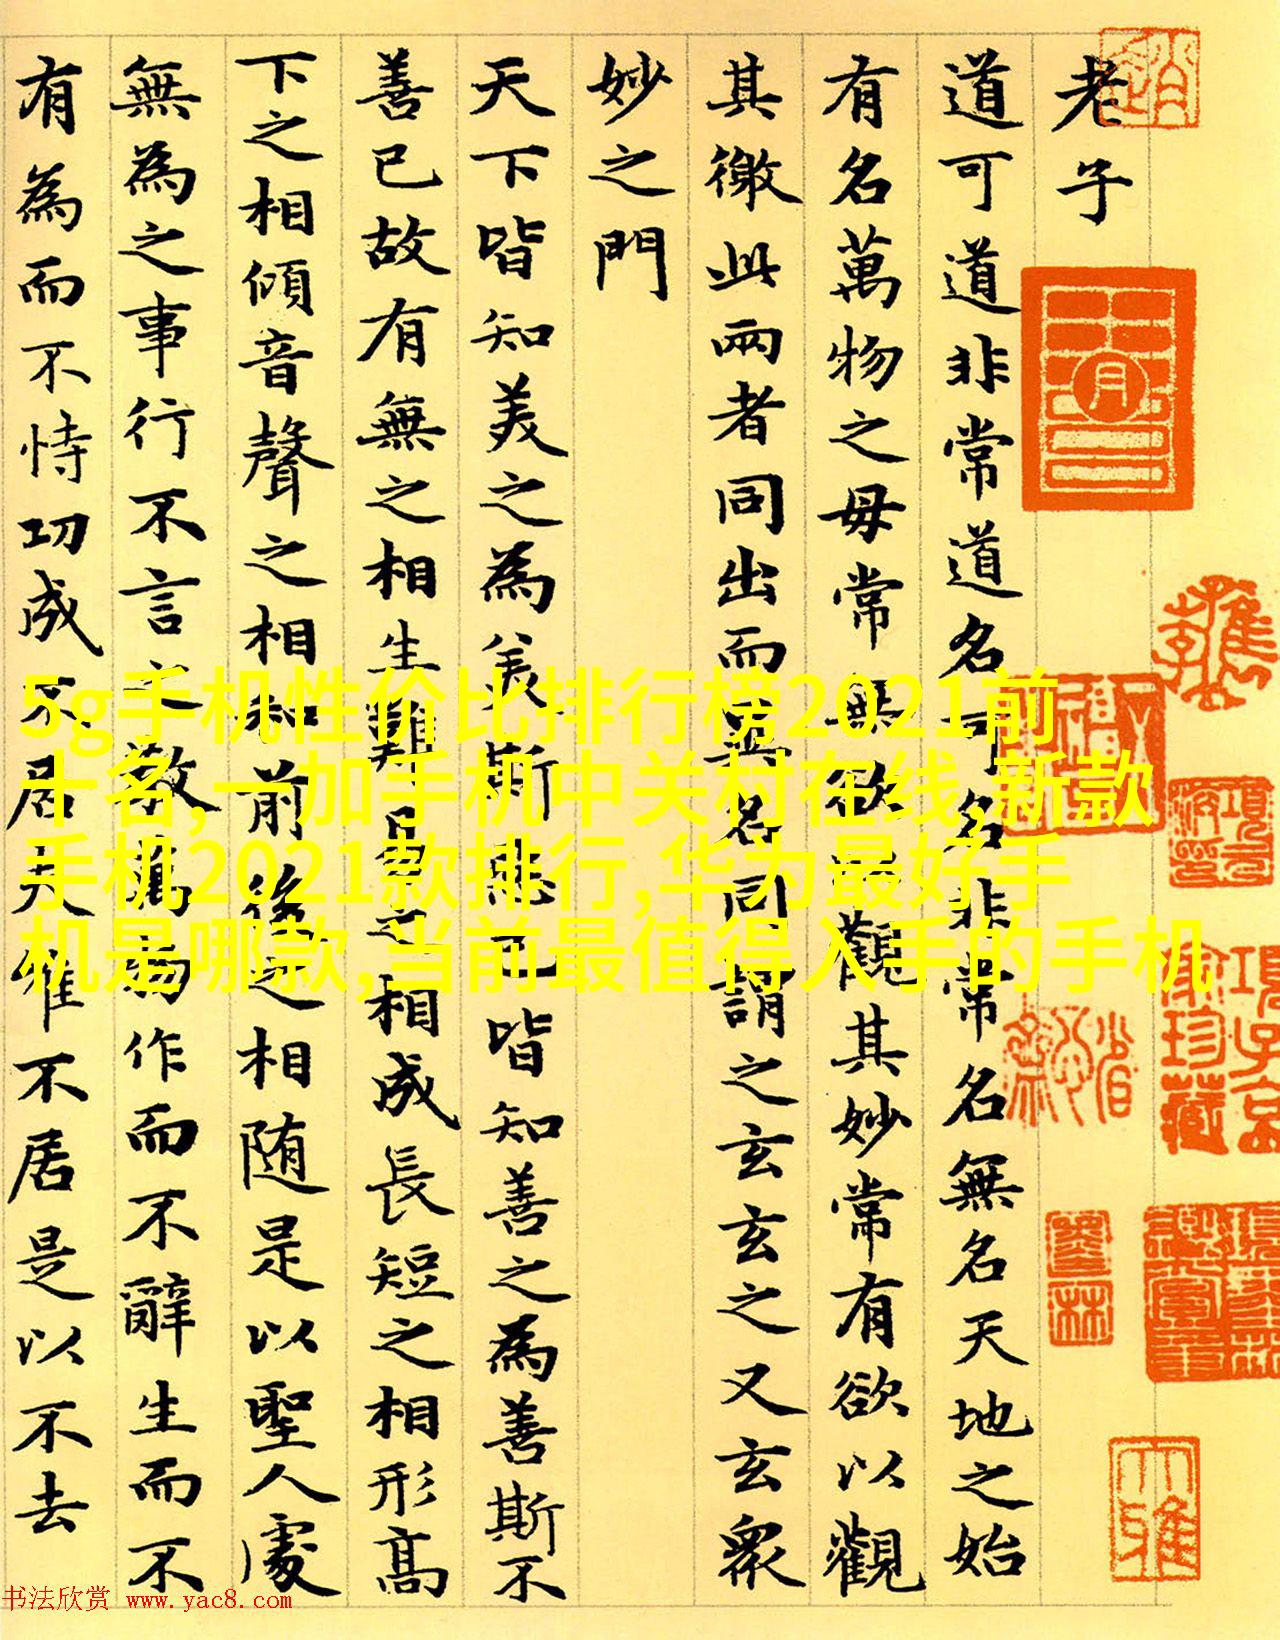 老子
道可道非常道名可名非常名無名天地之始
有名萬物之母常無欲以觀其妙常有欲以觀
其徼此兩者同出而異名同謂之玄玄之又玄衆
妙之門
天下皆知美之為美斯惡已皆知善之為善斯不
善已故有無之相生難易之相成長短之相形高
下之相傾音聲之相和前後之相随是以聖人處
無為之事行不言之教萬物作而不辭生而不
有為而不恃功成不居夫唯不居是以不去
5g手机性价比排行榜2021前
十名,一加手机中关村在线,新款
手机2021款排行,华为最好手
机是哪款,当前最值得入手的手机
項子京
家珍藏
书法欣赏 www.yac8.com